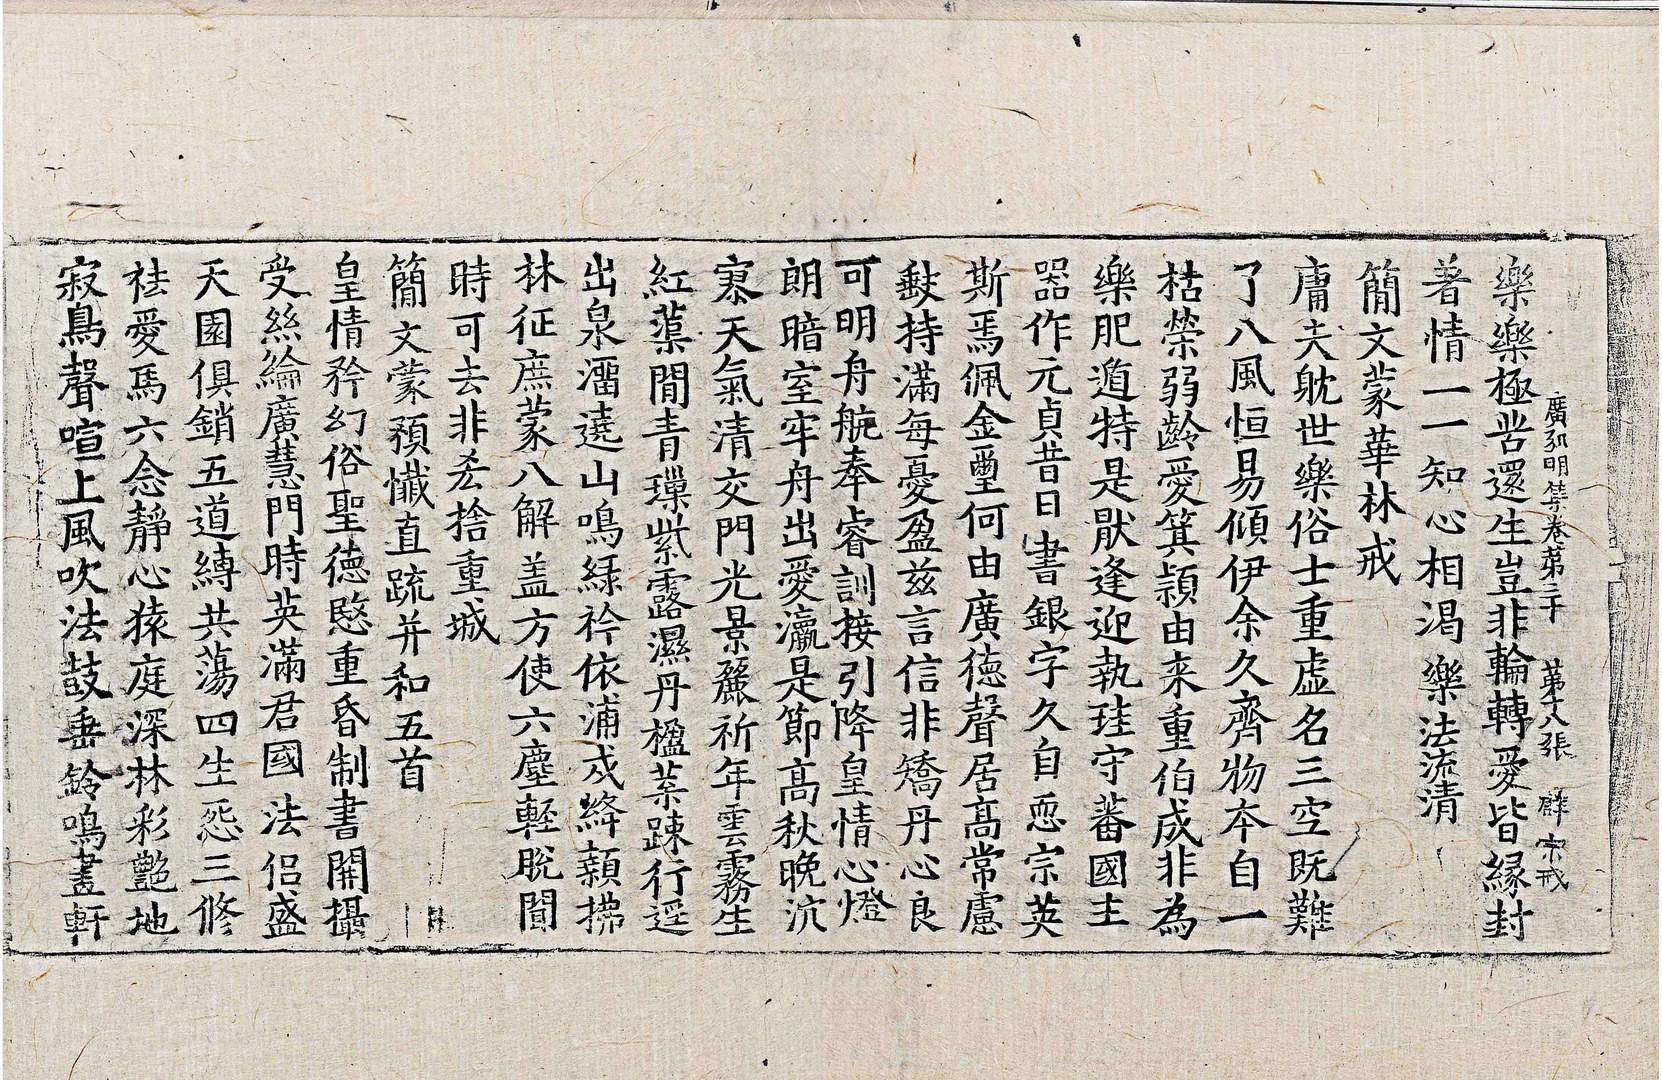 廣弘明集卷第三十 第十八張 群 宗戒
樂樂極苦還生豈非輪轉愛皆緣封
著情一一知心相渴樂法流清
簡文蒙華林戒
庸夫躭世樂俗士重虛名三空既難
了八風恒易傾伊余久齊物本自一
枯榮弱齡愛箕潁由来重伯成非為
樂肥遁特是猒逢迎執珪守蕃國主
器作元貞昔日書銀字久自恧宗英
斯焉佩金璽何由廣德聲居高常慮
缺持滿每憂盈茲言信非矯丹心良
可明舟航奉睿訓接引降皇情心燈
朗暗室牢舟出愛瀛是節高秋晚沆
寥天氣清交門光景麗祈年雲霧生
紅蕖間青璅紫露濕丹楹葉踈行逕
出泉溜遶山鳴綠衿依浦戍絳顙拂
林征庶蒙八解益方使六塵輕脫聞
時可去非吝捨重城
簡文蒙預懺直疏并和五首
皇情矜幻俗聖德愍重昏制書開攝
受絲綸廣慧門時英滿君國法侶盛
天園俱銷五道縛共蕩四生怨三修
祛愛馬六念靜心猿庭深林彩艷地
寂鳥聲喧上風吹法鼓垂鈴鳴畫軒